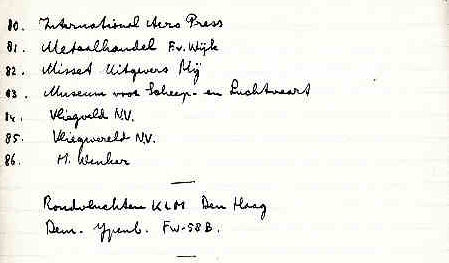 80. International Aero Press
81. Metaalhandel F.v. Wijk
82. Misset Uitgevers Mij
83. Museum voor Scheep- en Luchtvaart
84. Vliegveld N.V.
85. Vliegwereld N.V.
86. H. Wenker
Rondvluchten KLM Den Haag
Dem. Ypenb. FW-58 B.